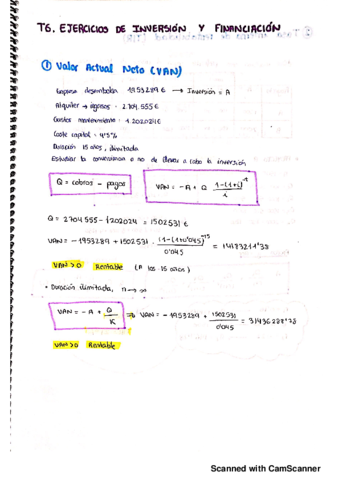 T6. EJERCICIOS DE INVERSIÓN Y FINANCIACIÓN
① Valor Actual Neto (VAN)
Empresa desembolsa 1953289 € → Inversión = A
Alquiler → ingresos : 2.704.555 €
Gastos mantenimiento : 1.202024 €
Coste capital : 4'5 %
Duración 15 años, ilimitada
Estudiar la conveniencia o no de llevar a cabo la inversión
Q = cobros - pagos
VAN = -A + Q 1-(1+i)
Q = 2704555 - 1202024 = 1502531 €
VAN = -1953289 + 1502531 · 1-(1+0'045)^-15 / 0'045 = 14183211'38
VAN > 0 Rentable (A los 15 años)
• Duración ilimitada, n → ∞
VAN = -A + Q/K ⇒ VAN = -1953289 + 1502531 / 0'045 = 31436288'78
VAN > 0 Rentable
Scanned with CamScanner